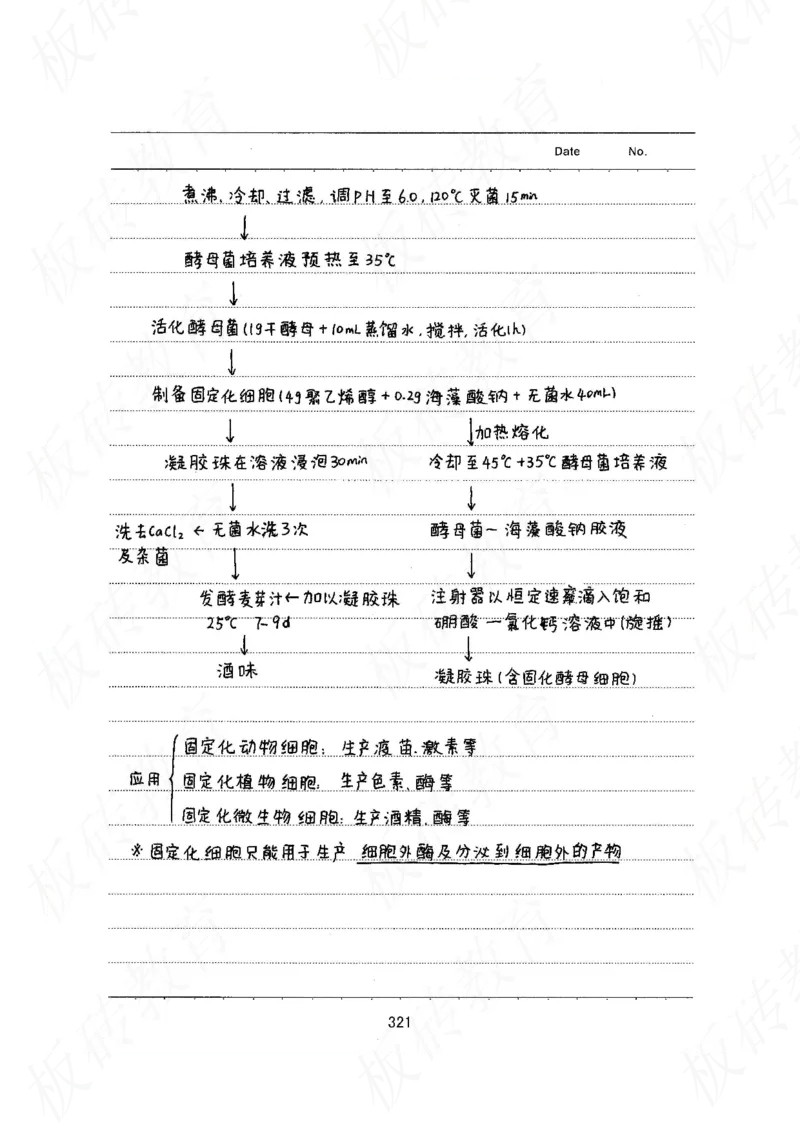 Date No.
煮沸、冷却、过滤,调PH至6.0,120℃灭菌15min
↓
酵母菌培养液预热至35℃
↓
活化酵母菌(1g干酵母+10mL蒸馏水,搅拌,活化1h)
↓
制备固定化细胞(4g聚乙烯醇+0.2g海藻酸钠+无菌水40mL)
↓ ↓加热熔化
凝胶珠在溶液浸泡30min 冷却至45℃+35℃酵母菌培养液
↓ ↓
洗去CaCl₂ ← 无菌水洗3次 酵母菌—海藻酸钠胶液
及杂菌 ↓ ↓
发酵麦芽汁←加以凝胶珠 注射器以恒定速率滴入饱和
25℃ 7-9d 硼酸—氯化钙溶液中(旋摇)
↓ ↓
酒味 凝胶珠(含固化酵母细胞)
固定化动物细胞:生产疫苗、激素等
应用 { 固定化植物细胞:生产色素、酶等
固定化微生物细胞:生产酒精、酶等
※固定化细胞只能用于生产 细胞外酶及分泌到细胞外的产物
321
板砖教育